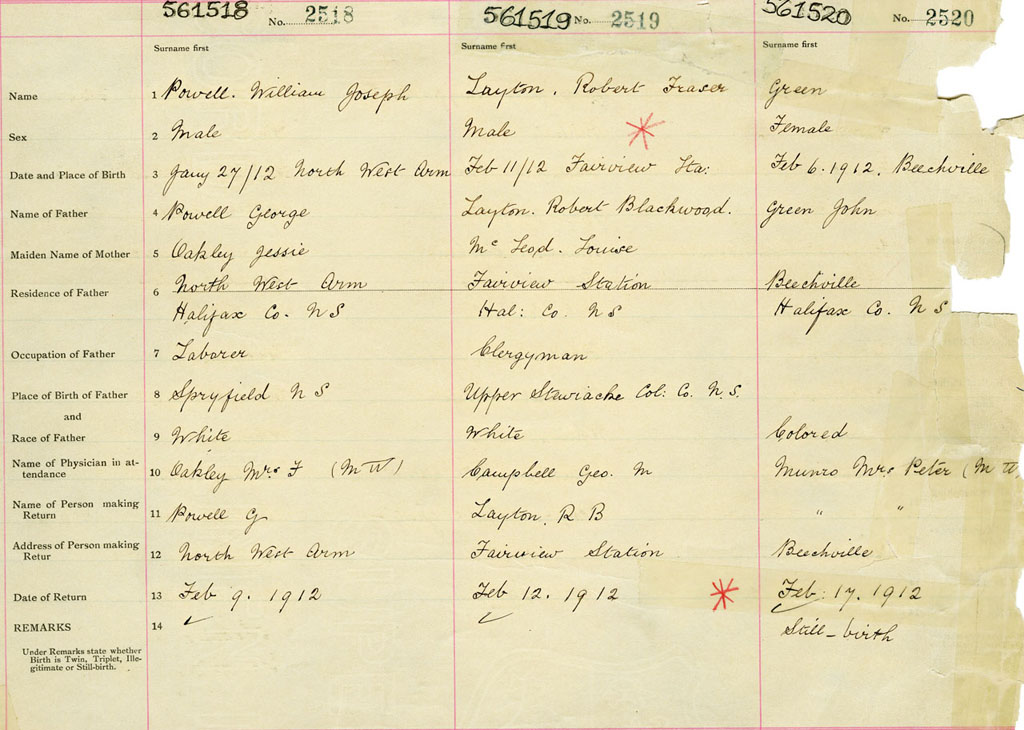 561518 No. 2518 561519 No. 2519 561520 No. 2520
Surname first Surname first Surname first
Name 1 Powell. William Joseph Layton. Robert Fraser Green
Sex 2 Male Male Female
Date and Place of Birth 3 Jany 27/12 North West Arm Feb 11/12 Fairview Sta: Feb 6. 1912. Beechville
Name of Father 4 Powell George Layton. Robert Blackwood. Green John
Maiden Name of Mother 5 Oakley Jessie Mc Leod. Louise
Residence of Father 6 North West Arm Fairview Station Beechville
Halifax Co. N S Hal: Co. N S Halifax Co. N S
Occupation of Father 7 Laborer Clergyman
Place of Birth of Father 8 Spryfield N S Upper Stewiacke Col: Co. N. S.
and
Race of Father 9 White White Colored
Name of Physician in at-
tendance 10 Oakley Mrs F (M W) Campbell Geo. M Munro Mrs Peter (M W
Name of Person making
Return 11 Powell G Layton. R B " "
Address of Person making
Retur 12 North West Arm Fairview Station Beechville
Date of Return 13 Feb 9. 1912 Feb 12. 1912 Feb. 17. 1912
REMARKS 14 Still-birth
Under Remarks state whether
Birth is Twin, Triplet, Ille-
gitimate or Still-birth.